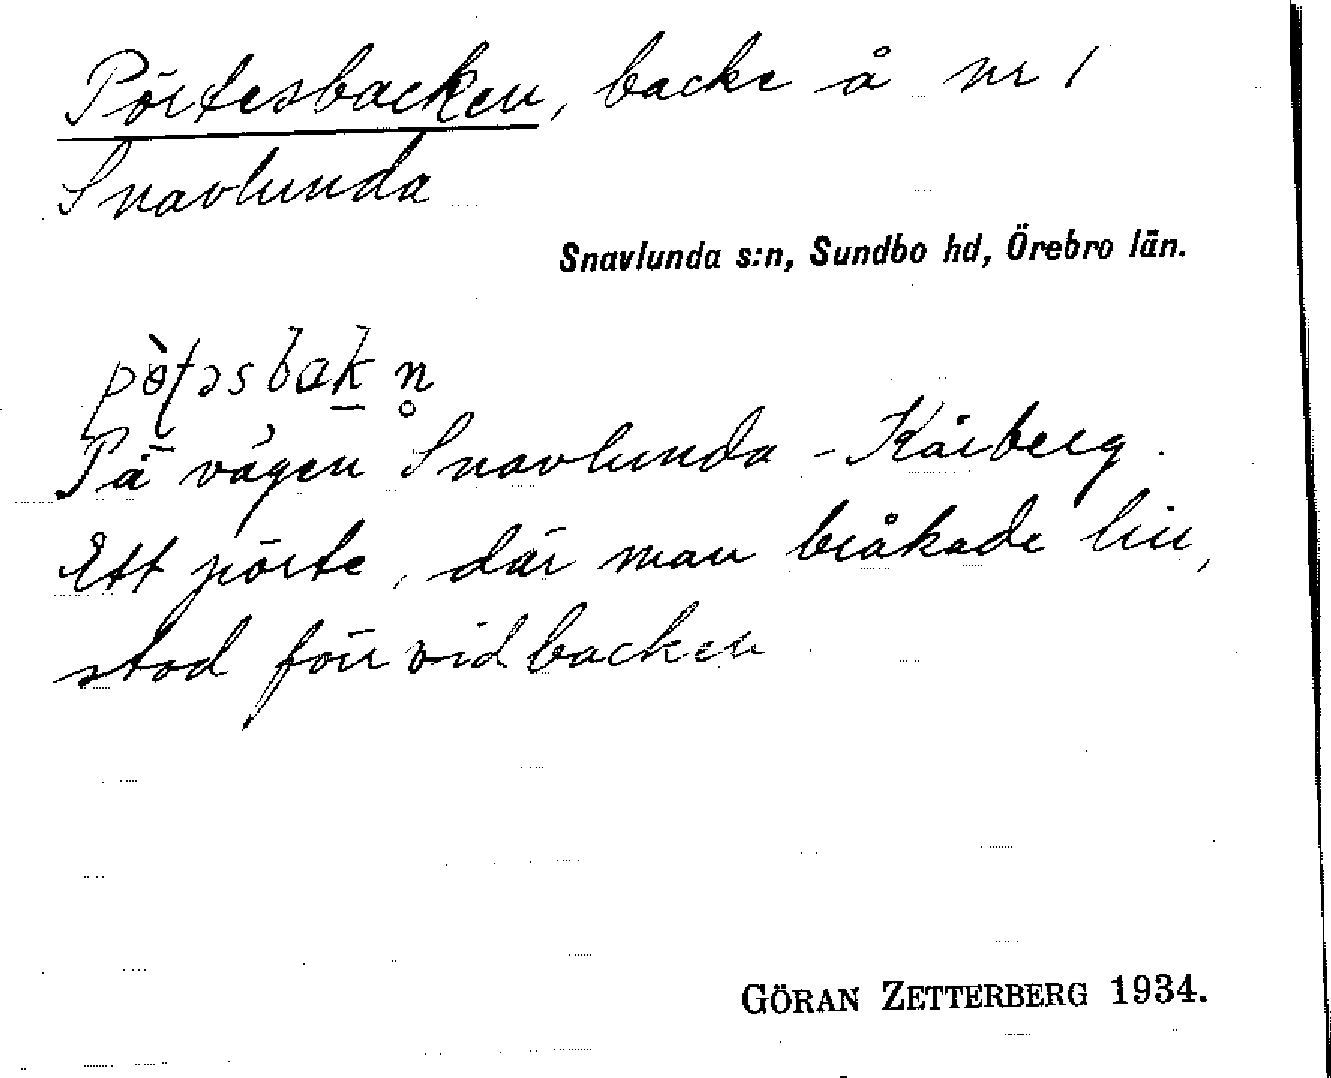 Pörtesbacken, backe å nr 1
Snavlunda
Snavlunda s:n, Sundbo hd, Örebro län.
pò̵ʈəsbak̠ n̥
På vägen Snavlunda - Kårberg.
Ett pörte, där man bråkade lin,
stod förr vid backen
GÖRAN ZETTERBERG 1934.